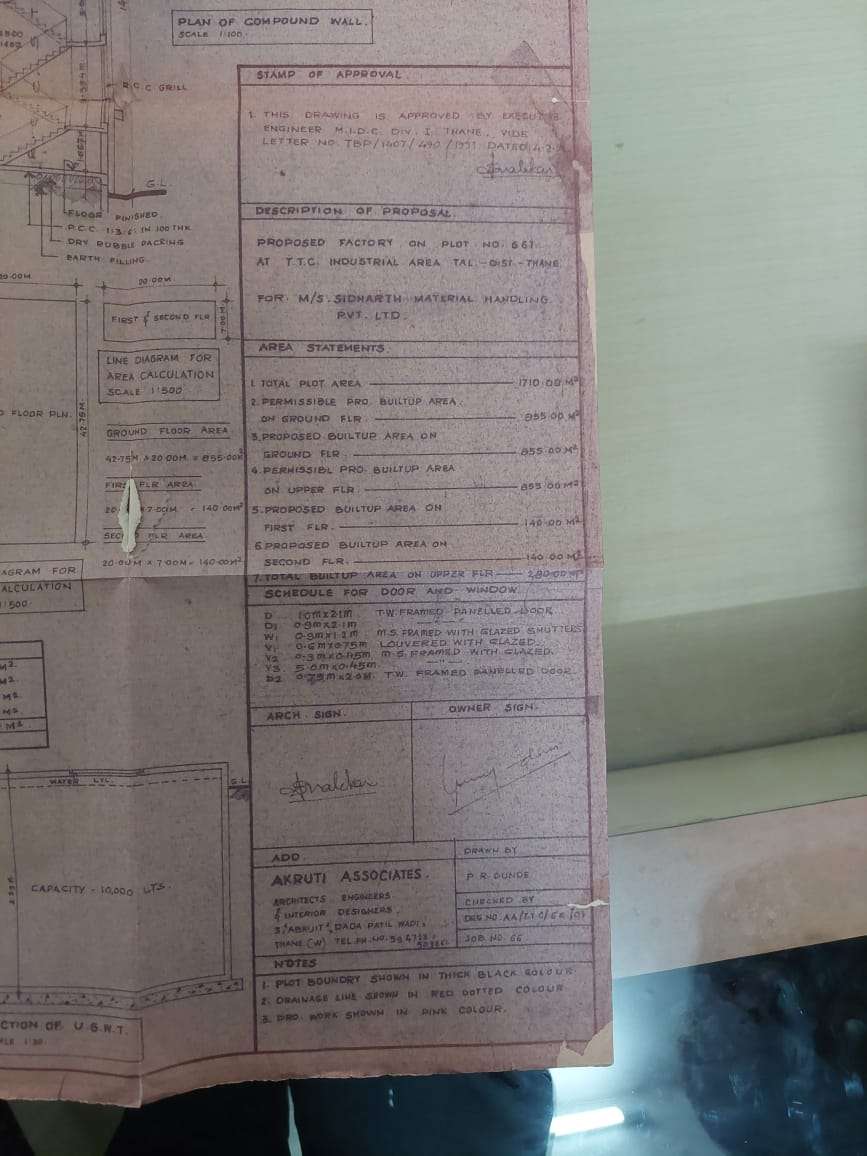 PLAN OF COMPOUND WALL.
SCALE 1:100.
R.C.C GRILL
G.L.
FLOOR FINISHED.
P.C.C. 1:3:6: IN 100 THK.
DRY RUBBLE PACKING
EARTH FILLING.
20.00M
FIRST & SECOND FLR
7.00M
LINE DIAGRAM FOR
AREA CALCULATION
SCALE 1:500
FLOOR PLN.
42.75M
GROUND FLOOR AREA
42.75M × 20.00M = 855.00M²
FIRST FLR AREA.
7.00M = 140.00M²
FLR AREA
20.00M × 7.00M = 140.00M²
FOR
1:500
STAMP OF APPROVAL
1. THIS DRAWING IS APPROVED BY
ENGINEER M.I.D.C. DIV. I, THANE, VIDE
LETTER NO. TBP/1407/490/1991 DATED
DESCRIPTION OF PROPOSAL
PROPOSED FACTORY ON PLOT NO. 661
AT T.T.C. INDUSTRIAL AREA TAL.-DIST.-THANE.
FOR M/S. SIDHARTH MATERIAL HANDLING
PVT. LTD.
AREA STATEMENTS.
1. TOTAL PLOT AREA 1710.00 M²
2. PERMISSIBLE PRO. BUILTUP AREA.
ON GROUND FLR. 855.00 M²
3. PROPOSED BUILTUP AREA ON
GROUND FLR 855.00 M²
4. PERMISSIBL PRO. BUILTUP AREA
ON UPPER FLR. 855.00 M²
5. PROPOSED BUILTUP AREA ON
FIRST FLR. 140.00 M²
6. PROPOSED BUILTUP AREA ON
SECOND FLR. 140.00 M²
7. TOTAL BUILTUP AREA ON UPPER FLR 280.00 M²
SCHEDULE FOR DOOR AND WINDOW.
D 1.0M×2.1M T.W. FRAMED PANELLED DOOR
D1 0.9M×2.1M
W1 0.9M×1.2M M.S. FRAMED WITH GLAZED SHUTTERS
V1 0.6M×0.75M LOUVERED WITH GLAZED.
V2 0.9M×0.45M M.S. FRAMED WITH GLAZED.
V3 5.0M×0.45M
D2 0.75M×2.0M. T.W. FRAMED PANELLED DOOR.
ARCH. SIGN.
OWNER SIGN.
WATER LVL.
G.L.
CAPACITY - 10,000 LTS.
OF U.G.W.T.
ADD.
AKRUTI ASSOCIATES.
ARCHITECTS ENGINEERS
& INTERIOR DESIGNERS
DADA PATIL WADI,
THANE (W) TEL.PH.NO.
DRAWN BY
CHECKED BY
JOB. NO. 66
NOTES
1. PLOT BOUNDRY SHOWN IN THICK BLACK COLOUR
2. DRAINAGE LINE SHOWN IN RED DOTTED COLOUR
3. PRO. WORK SHOWN IN PINK COLOUR.